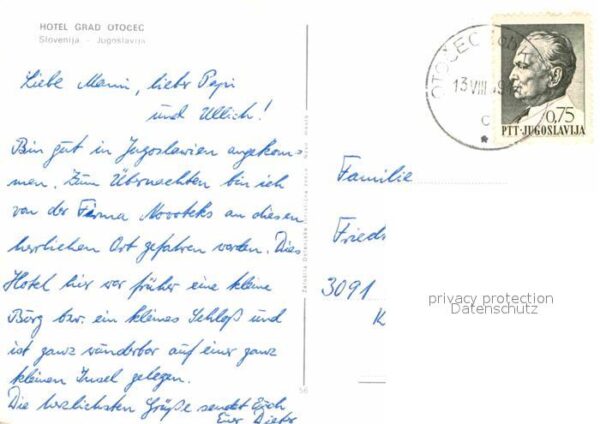 HOTEL GRAD OTOČEC
Slovenija - Jugoslavija
Liebe Mami, lieber Papi
und Ullich!
Bin gut in Jugoslawien angekom-
men. Zum Übernachten bin ich
von der Firma Novoteks an diesen
herrlichen Ort gefahren worden. Dies
Hotel hier war früher eine kleine
Burg bzw. ein kleines Schloß und
ist ganz wunderbar auf einer ganz
kleinen Insel gelegen.
Die herzlichsten Grüße sendet Euch
Euer Dieter
56
OTOČEC
13 VIII
c
0,75
PTT-JUGOSLAVIJA
Familie
Frieds
3091
K
privacy protection
Datenschutz